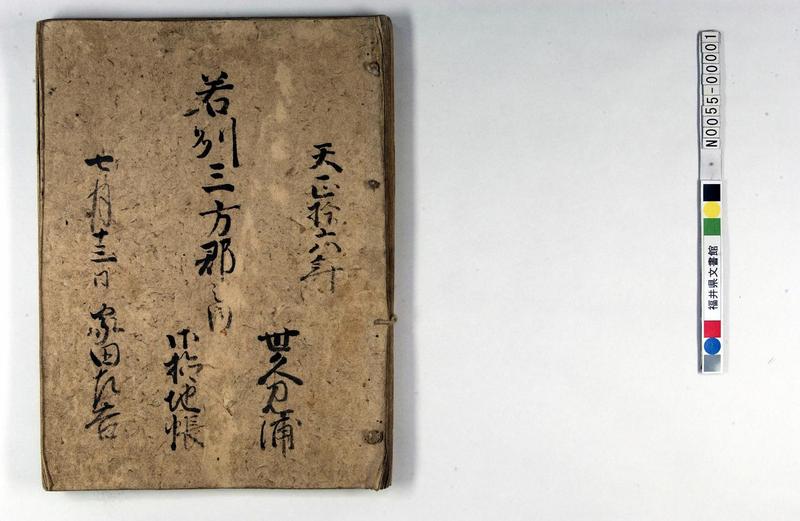 天正拾六年
世久見浦
若州三方郡之内
御検地帳
七月十三日 家田左吉
N0055-00001
福井県文書館